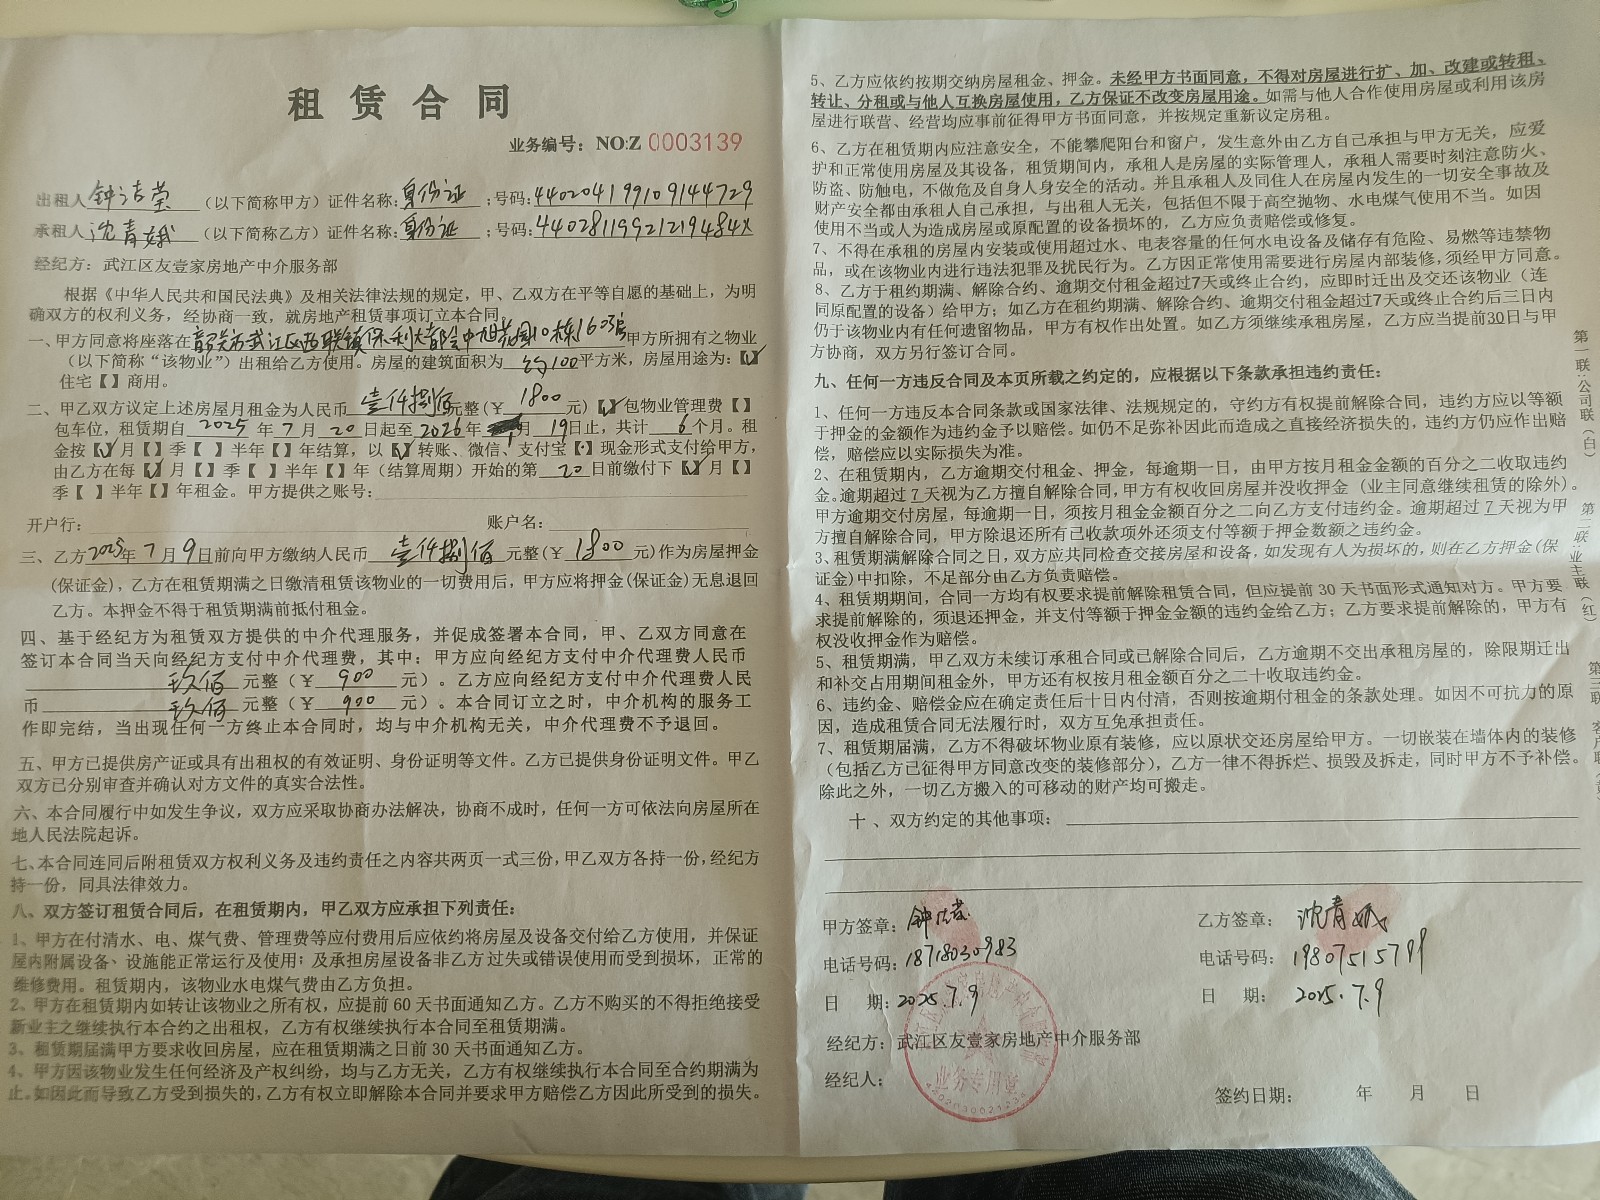 租赁合同
业务编号：NO:Z 0003139
出租人 钟洁莹 （以下简称甲方）证件名称：身份证 ；号码：440204199109144729
承租人 沈青娥 （以下简称乙方）证件名称：身份证 ；号码：44028119921219484X
经纪方：武江区友壹家房地产中介服务部
根据《中华人民共和国民法典》及相关法律法规的规定，甲、乙双方在平等自愿的基础上，为明
确双方的权利义务，经协商一致，就房地产租赁事项订立本合同。
一、甲方同意将座落在韶关市武江区西联镇保利大都会中旭花园10栋1603房 甲方所拥有之物业
（以下简称“该物业”）出租给乙方使用。房屋的建筑面积为 约100平方米，房屋用途为：【√】
住宅【 】商用。
二、甲乙双方议定上述房屋月租金为人民币 壹仟捌佰元整（￥ 1800 元）【√】包物业管理费【 】
包车位，租赁期自 2025 年 7 月 20 日起至 2026 年 1月 19日止，共计 6 个月。租
金按【√】月【 】季【 】半年【 】年结算，以【√】转账、微信、支付宝【·】现金形式支付给甲方，
由乙方在每【√】月【 】季【 】半年【 】年（结算周期）开始的第 20 日前缴付下【√】月【 】
季【 】半年【 】年租金。甲方提供之账号：
开户行： 账户名：
三、乙方2025年 7 月 9 日前向甲方缴纳人民币 壹仟捌佰 元整（￥ 1800 元）作为房屋押金
（保证金），乙方在租赁期满之日缴清租赁该物业的一切费用后，甲方应将押金（保证金）无息退回
乙方。本押金不得于租赁期满前抵付租金。
四、基于经纪方为租赁双方提供的中介代理服务，并促成签署本合同，甲、乙双方同意在
签订本合同当天向经纪方支付中介代理费，其中：甲方应向经纪方支付中介代理费人民币
玖佰 元整（￥ 900 元）。乙方应向经纪方支付中介代理费人民
币 玖佰 元整（￥ 900 元）。本合同订立之时，中介机构的服务工
作即完结，当出现任何一方终止本合同时，均与中介机构无关，中介代理费不予退回。
五、甲方已提供房产证或具有出租权的有效证明、身份证明等文件。乙方已提供身份证明文件。甲乙
双方已分别审查并确认对方文件的真实合法性。
六、本合同履行中如发生争议，双方应采取协商办法解决，协商不成时，任何一方可依法向房屋所在
地人民法院起诉。
七、本合同连同后附租赁双方权利义务及违约责任之内容共两页一式三份，甲乙双方各持一份，经纪方
持一份，同具法律效力。
八、双方签订租赁合同后，在租赁期内，甲乙双方应承担下列责任：
1、甲方在付清水、电、煤气费、管理费等应付费用后应依约将房屋及设备交付给乙方使用，并保证
屋内附属设备、设施能正常运行及使用；及承担房屋设备非乙方过失或错误使用而受到损坏，正常的
维修费用。租赁期内，该物业水电煤气费由乙方负担。
2、甲方在租赁期内如转让该物业之所有权，应提前 60 天书面通知乙方。乙方不购买的不得拒绝接受
新业主之继续执行本合约之出租权，乙方有权继续执行本合同至租赁期满。
3、租赁期届满甲方要求收回房屋，应在租赁期满之日前 30 天书面通知乙方。
4、甲方因该物业发生任何经济及产权纠纷，均与乙方无关，乙方有权继续执行本合同至合约期满为
止。如因此而导致乙方受到损失的，乙方有权立即解除本合同并要求甲方赔偿乙方因此所受到的损失。
5、乙方应依约按期交纳房屋租金、押金。未经甲方书面同意，不得对房屋进行扩、加、改建或转租、
转让、分租或与他人互换房屋使用，乙方保证不改变房屋用途。如需与他人合作使用房屋或利用该房
屋进行联营、经营均应事前征得甲方书面同意，并按规定重新议定房租。
6、乙方在租赁期内应注意安全，不能攀爬阳台和窗户，发生意外由乙方自己承担与甲方无关，应爱
护和正常使用房屋及其设备，租赁期间内，承租人是房屋的实际管理人，承租人需要时刻注意防火、
防盗、防触电，不做危及自身人身安全的活动。并且承租人及同住人在房屋内发生的一切安全事故及
财产安全都由承租人自己承担，与出租人无关，包括但不限于高空抛物、水电煤气使用不当。如因
使用不当或人为造成房屋或原配置的设备损坏的，乙方应负责赔偿或修复。
7、不得在承租的房屋内安装或使用超过水、电表容量的任何水电设备及储存有危险、易燃等违禁物
品，或在该物业内进行违法犯罪及扰民行为。乙方因正常使用需要进行房屋内部装修，须经甲方同意。
8、乙方于租约期满、解除合约、逾期交付租金超过7天或终止合约，应即时迁出及交还该物业（连
同原配置的设备）给甲方；如乙方在租约期满、解除合约、逾期交付租金超过7天或终止合约后三日内
仍于该物业内有任何遗留物品，甲方有权作出处置。如乙方须继续承租房屋，乙方应当提前30日与甲
方协商，双方另行签订合同。
九、任何一方违反合同及本页所载之约定的，应根据以下条款承担违约责任：
1、任何一方违反本合同条款或国家法律、法规规定的，守约方有权提前解除合同，违约方应以等额
于押金的金额作为违约金予以赔偿。如仍不足弥补因此而造成之直接经济损失的，违约方仍应作出赔
偿，赔偿应以实际损失为准。
2、在租赁期内，乙方逾期交付租金、押金，每逾期一日，由甲方按月租金金额的百分之二收取违约
金。逾期超过 7 天视为乙方擅自解除合同，甲方有权收回房屋并没收押金（业主同意继续租赁的除外）。
甲方逾期交付房屋，每逾期一日，须按月租金金额百分之二向乙方支付违约金。逾期超过 7 天视为甲
方擅自解除合同，甲方除退还所有已收款项外还须支付等额于押金数额之违约金。
3、租赁期满解除合同之日，双方应共同检查交接房屋和设备，如发现有人为损坏的，则在乙方押金（保
证金）中扣除，不足部分由乙方负责赔偿。
4、租赁期期间，合同一方均有权要求提前解除租赁合同，但应提前 30 天书面形式通知对方。甲方要
求提前解除的，须退还押金，并支付等额于押金金额的违约金给乙方；乙方要求提前解除的，甲方有
权没收押金作为赔偿。
5、租赁期满，甲乙双方未续订承租合同或已解除合同后，乙方逾期不交出承租房屋的，除限期迁出
和补交占用期间租金外，甲方还有权按月租金额百分之二十收取违约金。
6、违约金、赔偿金应在确定责任后十日内付清，否则按逾期付租金的条款处理。如因不可抗力的原
因，造成租赁合同无法履行时，双方互免承担责任。
7、租赁期届满，乙方不得破坏物业原有装修，应以原状交还房屋给甲方。一切嵌装在墙体内的装修
（包括乙方已征得甲方同意改变的装修部分），乙方一律不得拆烂、损毁及拆走，同时甲方不予补偿。
除此之外，一切乙方搬入的可移动的财产均可搬走。
十、双方约定的其他事项：
甲方签章：钟洁莹 乙方签章：沈青娥
电话号码：18718030983 电话号码：19807515799
日 期：2025 7.9 日 期：2025.7.9
经纪方：武江区友壹家房地产中介服务部
经纪人：
业务专用章
签约日期： 年 月 日
第一联：公司联（白）
第二联：业主联（红）